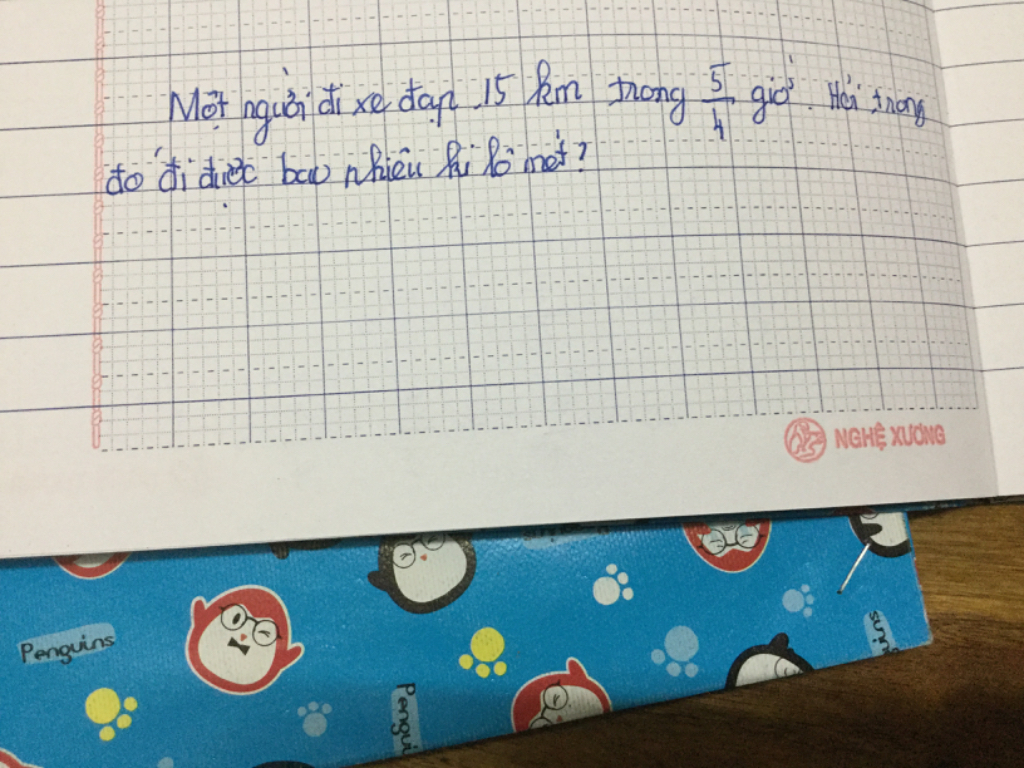 Một người đi xe đạp 15 km trong 5/4 giờ. Hỏi trong
đó đi được bao nhiêu ki lô mét?
NGHỆ XƯƠNG
Penguins
Pengui